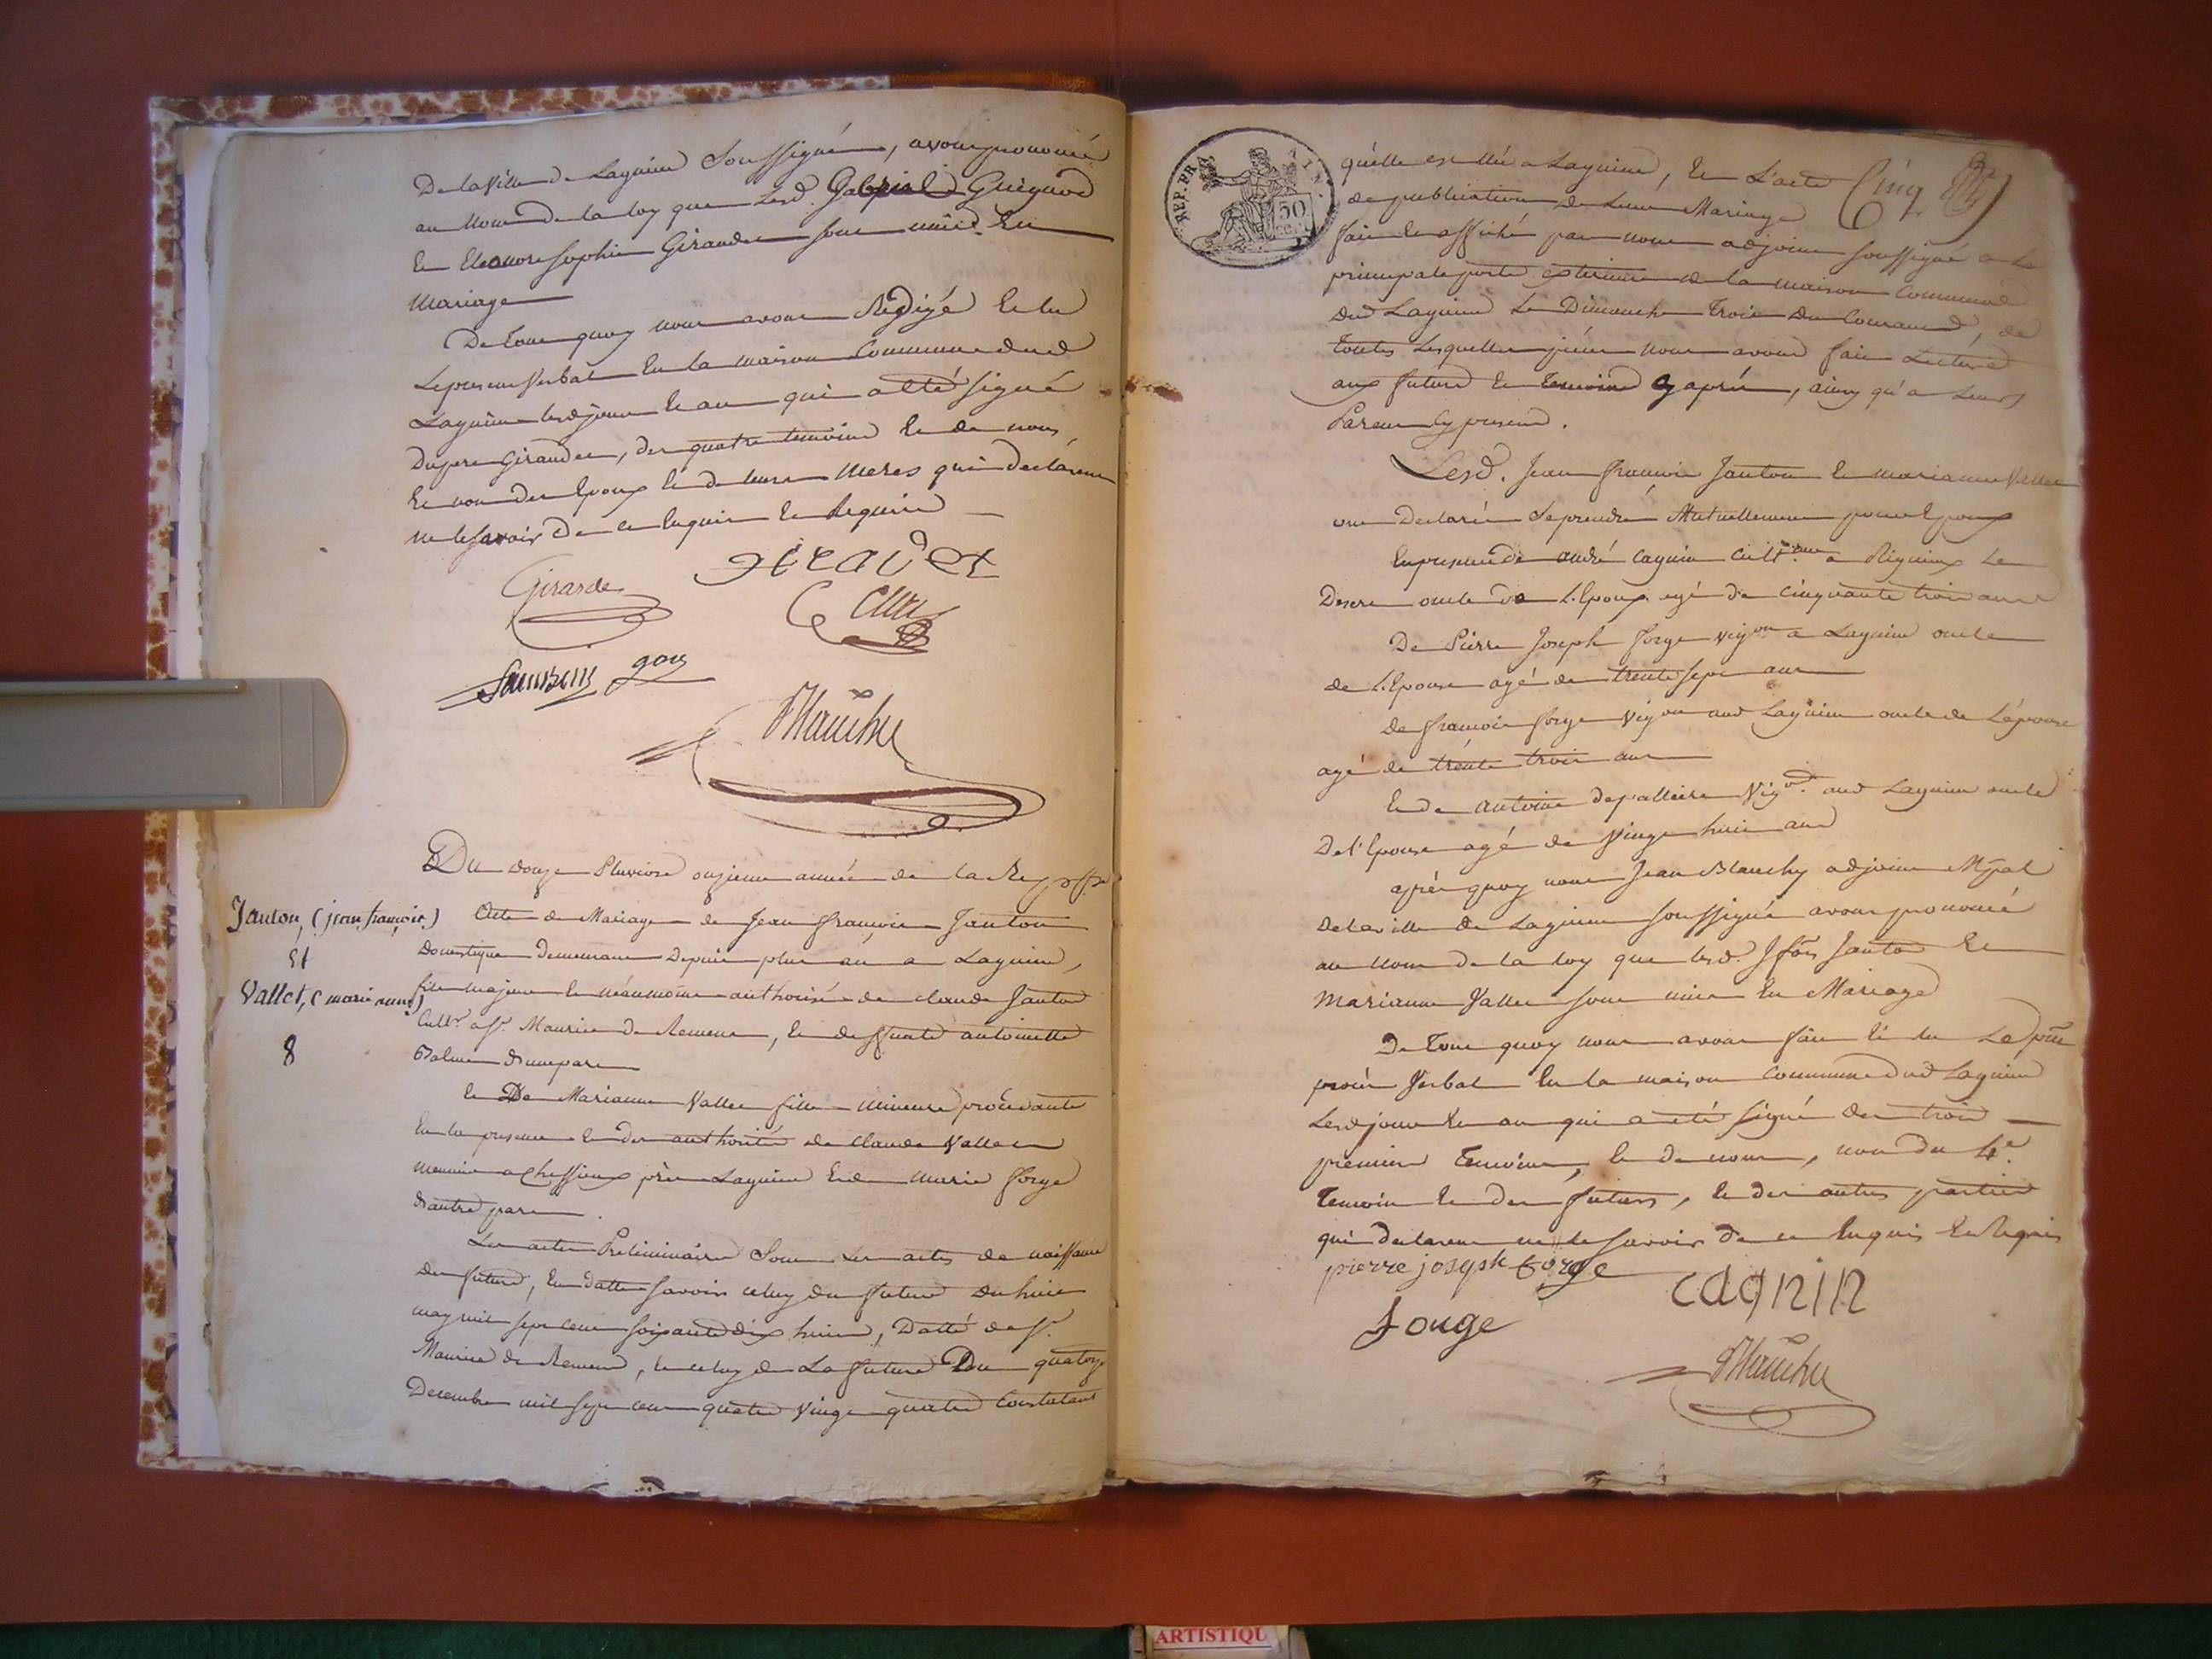 De la Ville de Lagnieu Soussigné, avons prononcé
au Nom de la loy que Lesd. Gabriel Guignod
Et Eleonore Sophie Giraudet sont unis En
Mariage
De Tout quoy nous avons Rédigé Et lu
Le present Verbal En la maison Commune dud
Lagnieu lesd jour Et an qui a été signé
Du pere Giraudet, des quatre temoins Et de nous
Et non des Epoux Et de leurs Meres qui declarent
ne le savoir De ce Enquis Et Requis
Girardet
Blanchy
Du douze Pluviose onzieme année de la Rep. ffse
Janton, (jean françois)
Et
Vallet, (marie anne)
8
Acte de Mariage de Jean françois Janton
Domestique Demeurant Depuis plus d'un an a Lagnieu,
fils majeur Et néanmoins authorisé de claude Janton
Cultr. a St. Maurice de Remens, Et de deffunte antoinette
D'une part
Et De Marianne Vallet fille mineure procedante
En la presence Et de l'authorité de Claude Vallet
meunier a Chessieux près Lagnieu Et de marie forge
D'autre part.
Les actes Préliminaires Sont Les actes de naissance
Des futurs, En datte savoir celuy du futur du huit
may mil sept cent soixante dix huit, Datté de St.
Maurice de Remens, Et celuy de La future Du quatorze
Decembre mil sept cent quatre Vingt quatre Constatant
REP. FRA
50
qu'elle est née a Lagnieu, Et L'acte
de publication de Leur Mariage
Cinq
fait Et affiché par nous adjoint soussigné a La
principale porte exterieure de la maison Commune
dud Lagnieu Le Dimanche Trois du Courant, de
Toutes Lesquelles pieces nous avons fait Lecture
aux futurs Et Temoins Cy après, ainsy qu'a Leurs
Parens Cy presens.
Lesd. Jean françois Janton Et marianne Vallet
ont Declaré se prendre Mutuellement pour Epoux
En presence de andré Cagnin Cultr. a Rignieux Le
Desert oncle de L'Epoux agé de Cinquante trois ans
De Pierre Joseph forge Vigon a Lagnieu oncle
de L'Epouse agé de trente sept ans
De françois forge Vigon aud Lagnieu oncle de L'épouse
agé de trente trois ans
Et de antoine Vigon. aud Lagnieu oncle
De l'Epouse agé de Vingt huit ans
après quoy nous Jean Blanchy adjoint Mpal
de la Ville de Lagnieu soussigné avons prononcé
au Nom de la loy que lesd. J fois Janton Et
Marianne Vallet sont unis En Mariage
De Tout quoy nous avons fait Et lu Le pnt
procès Verbal En la maison Commune dud Lagnieu
Lesd jour Et an qui a été signé des trois
premiers Temoins, Et de nous, non du 4e.
Temoin Et des futurs, Et des autres parties
qui declarent ne le savoir De ce Enquis Et Requis
pierre joseph forge
cagnin
forge
Blanchy
ARTISTIQU